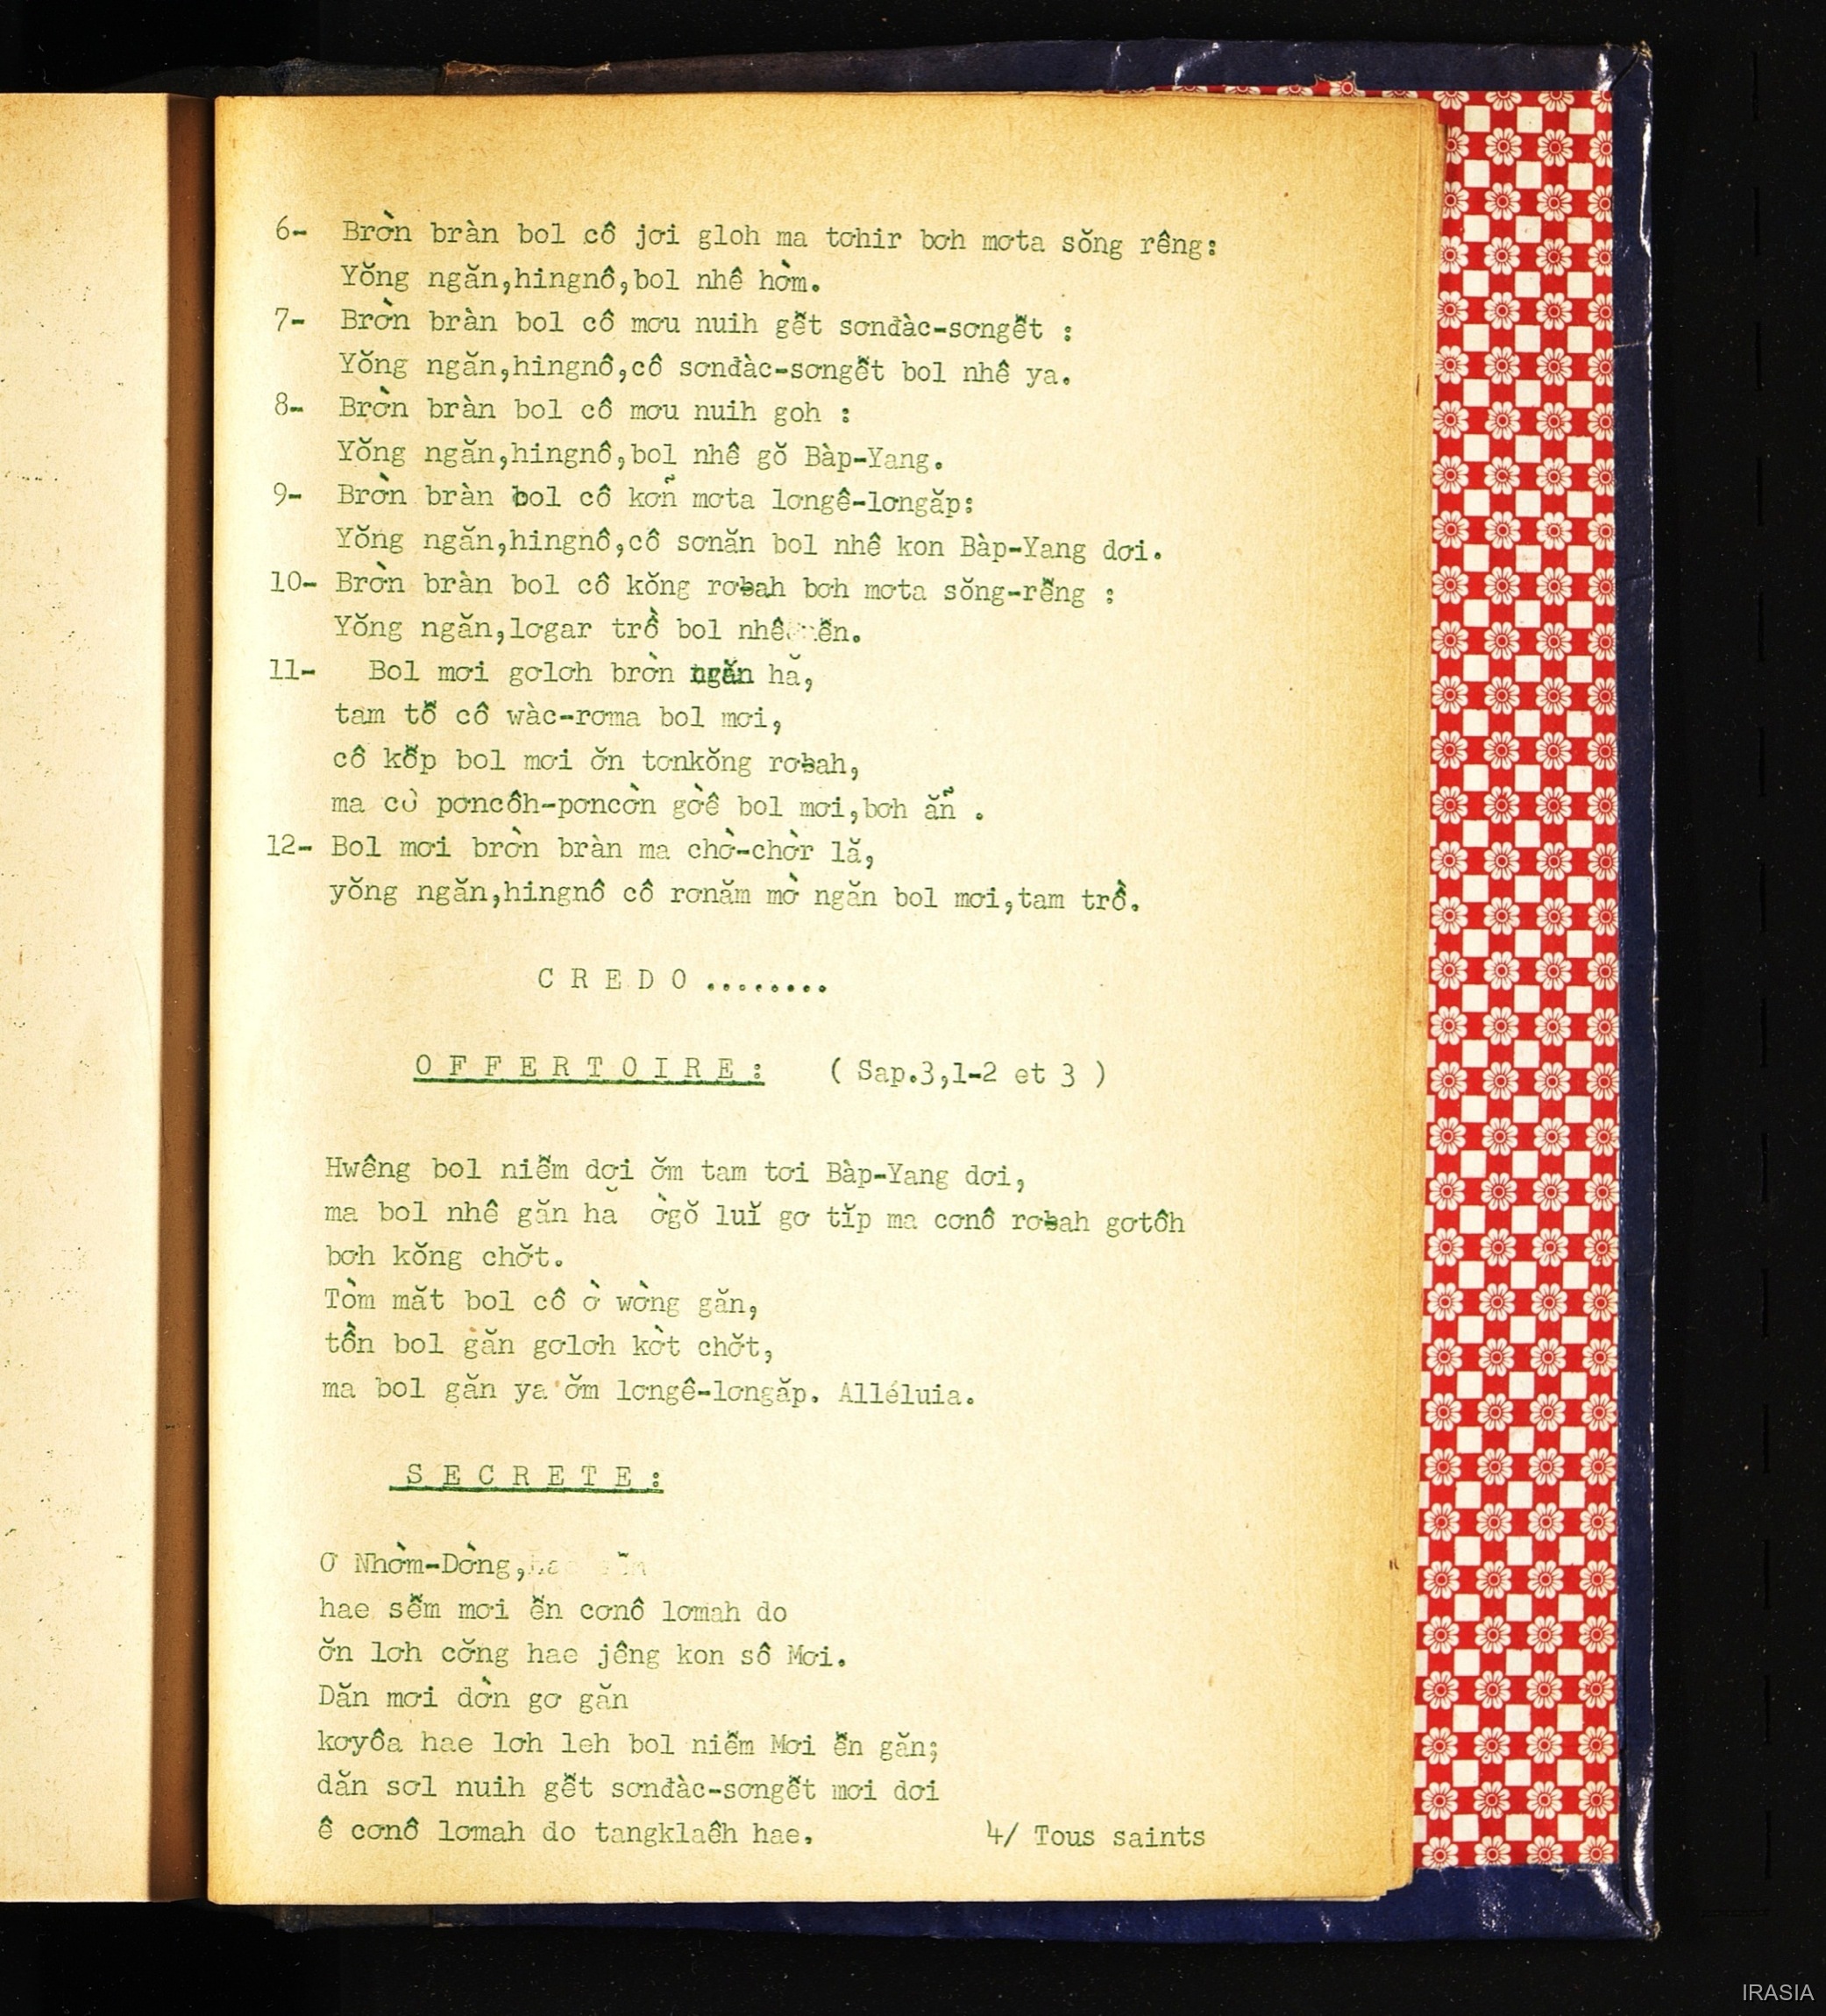 6- Brờn bràn bol cô jơi gloh ma tơhir bơh mơta sŏng rêng:
Yŏng ngăn,hingnô,bol nhê hờm.
7- Brờn bràn bol cô mơu nuih gê̆t sơnđàc-sơngê̆t :
Yŏng ngăn,hingnô,cô sơnđàc-sơngê̆t bol nhê ya.
8- Brờn bràn bol cô mơu nuih goh :
Yŏng ngăn,hingnô,bol nhê gŏ Bàp-Yang.
9- Brờn bràn bol cô kơñ mơta lơngê-lơngăp:
Yŏng ngăn,hingnô,cô sơnăn bol nhê kon Bàp-Yang dơi.
10- Brờn bràn bol cô kŏng rơƀah bơh mơta sŏng-rê̆ng :
Yŏng ngăn,lơgar trồ bol nhê
11- Bol mơi gơlơh brờn ngăn hă,
tam tô̆ cô wàc-rơma bol mơi,
cô kô̆p bol mơi ơ̆n tơnkŏng rơƀah,
ma cờ pơncôh-pơncờn gờê bol mơi,bơh ăñ .
12- Bol mơi brờn bràn ma chờ-chờr lă,
yŏng ngăn,hingnô cô rơnăm mờ ngăn bol mơi,tam trồ.
C R E D O ........
O F F E R T O I R E : ( Sap.3,1-2 et 3 )
Hwêng bol niê̆m dơi ơ̆m tam tơi Bàp-Yang dơi,
ma bol nhê găn hă ờgŏ luĭ gơ tĭp ma cơnô rơƀah gơtôh
bơh kŏng chơ̆t.
Tờm măt bol cô ờ wờng găn,
tồn bol găn gơlơh kờt chơ̆t,
ma bol găn ya ơ̆m lơngê-lơngăp. Alléluia.
S E C R E T E :
Ơ Nhờm-Dờng,
hae sê̆m mơi ê̆n cơnô lơmah do
ơ̆n lơh cơ̆ng hae jêng kon sô Mơi.
Dăn mơi dờn gơ găn
kơyôa hae lơh leh bol niê̆m Mơi ê̆n găn;
dăn sơl nuih gê̆t sơnđàc-sơngê̆t mơi dơi
ê cơnô lơmah do tangklaêh hae. 4/ Tous saints
IRASIA